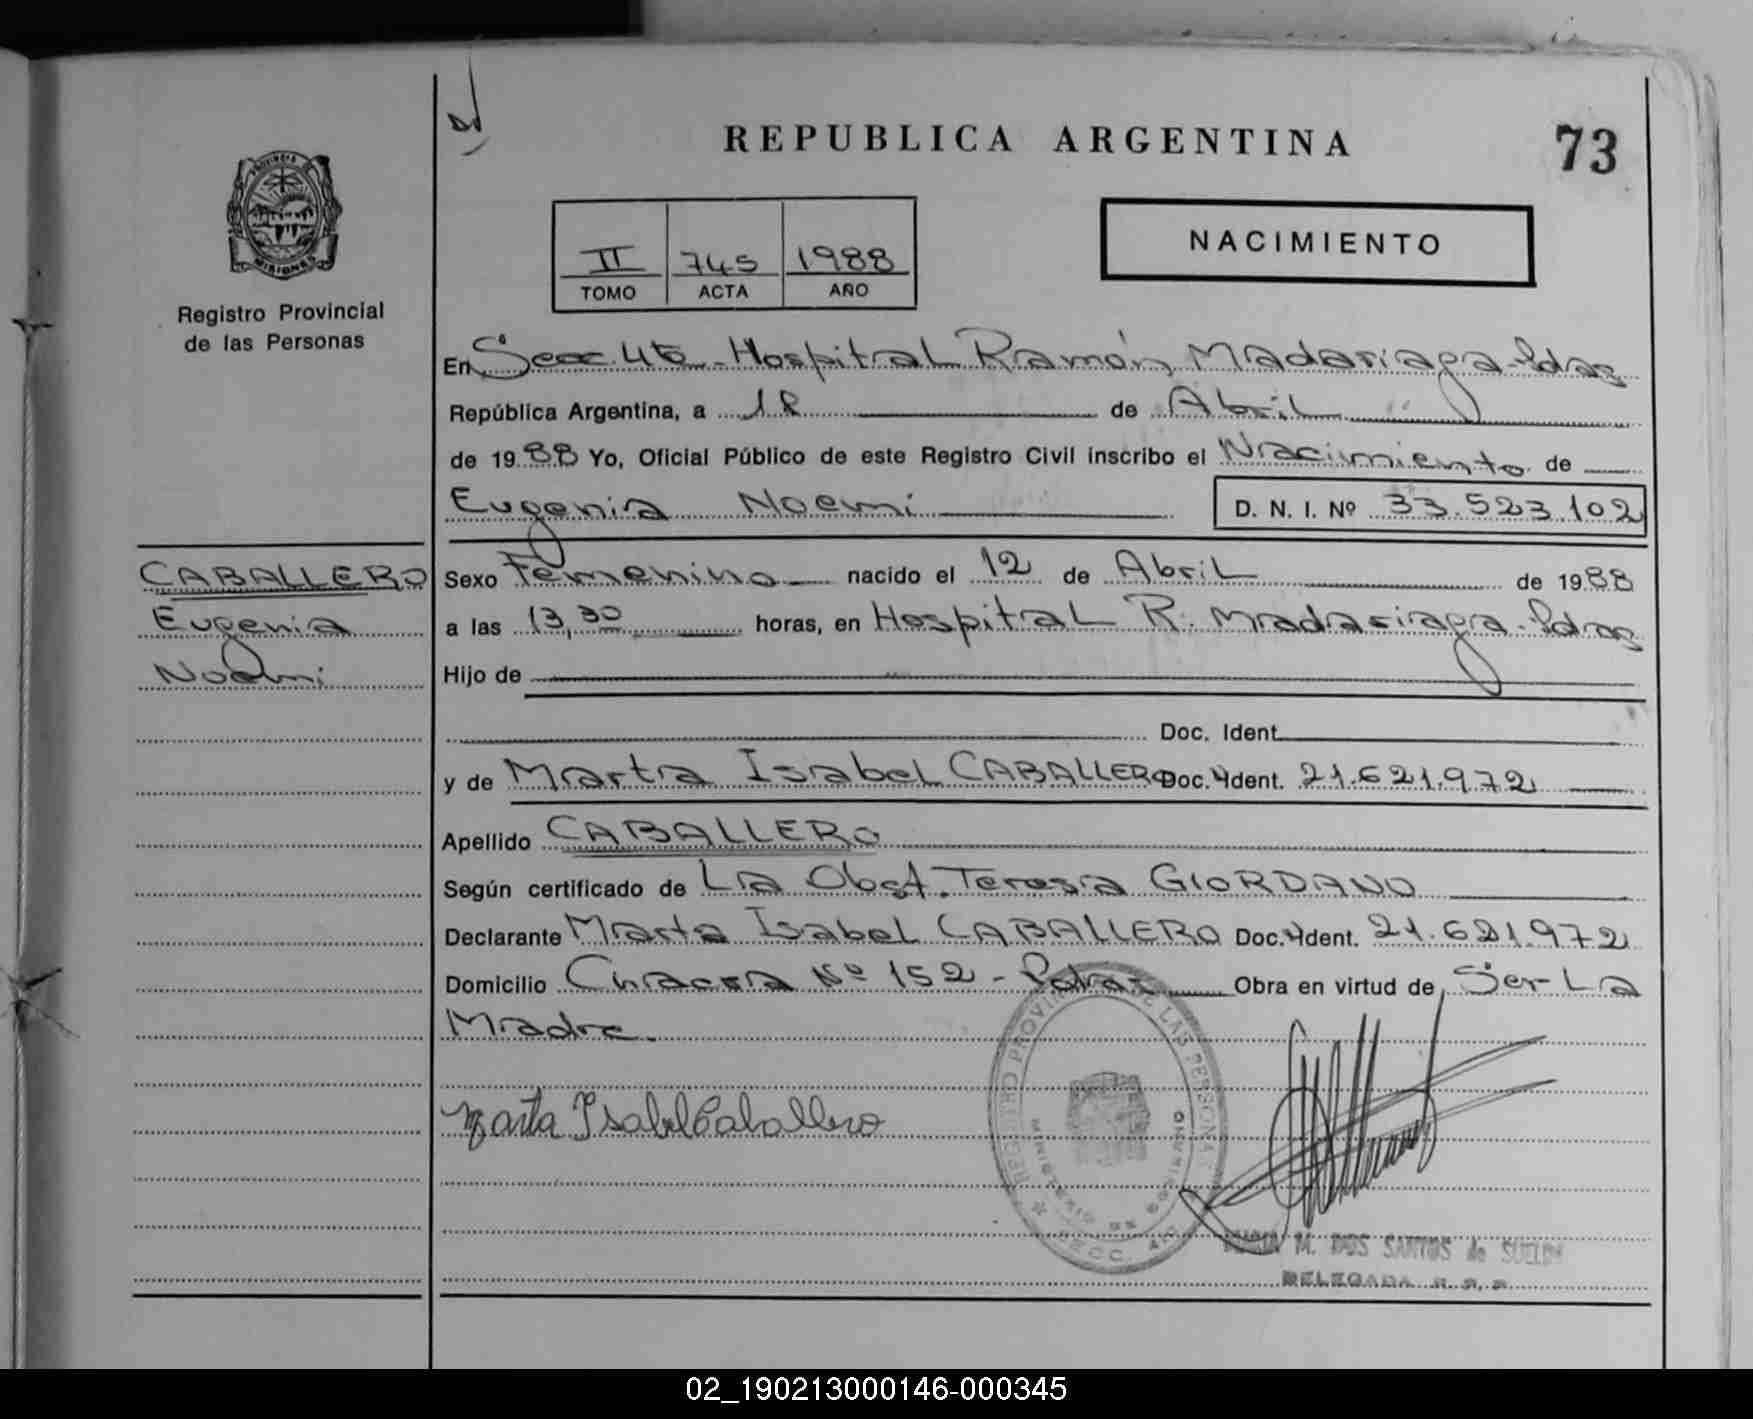 73
REPUBLICA ARGENTINA
NACIMIENTO
PROVINCIA
MISIONES
Registro Provincial
de las Personas
II 745 1988
TOMO ACTA AÑO
En Secc. 4ta - Hospital Ramón Madariaga - Pdas
República Argentina, a 18 de Abril
de 1988 Yo, Oficial Público de este Registro Civil inscribo el Nacimiento de
Eugenia Noemi D. N. I. Nº 33.523.102
CABALLERO
Eugenia
Noemi
Sexo Femenino nacido el 12 de Abril de 1988
a las 13,30 horas, en Hospital R. Madariaga - Pdas
Hijo de
Doc. Ident.
y de Marta Isabel CABALLERO Doc. Ident. 21.621.972
Apellido CABALLERO
Según certificado de La Obst. Teresa GIORDANO
Declarante Marta Isabel CABALLERO Doc. Ident. 21.621.972
Domicilio Chacra Nº 152 - Pdas Obra en virtud de Ser La
Madre.
Marta Isabel Caballero
REGISTRO PROVINCIAL DE LAS PERSONAS
MINISTERIO DE GOBIERNO
SECC. 4ta
MARIA M. DOS SANTOS de
DELEGADA R. P. P.
02_190213000146-000345